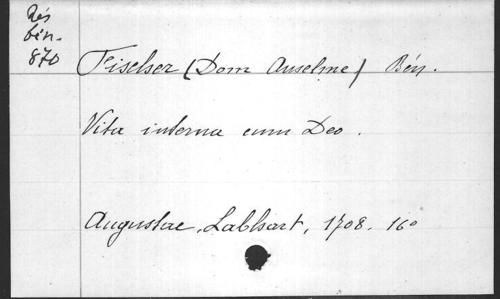 Rés
bén.
870
Fischer (Dom Anselme) Bén.
Vita interna cum Deo.
Augustae, Labhart, 1708. 16°